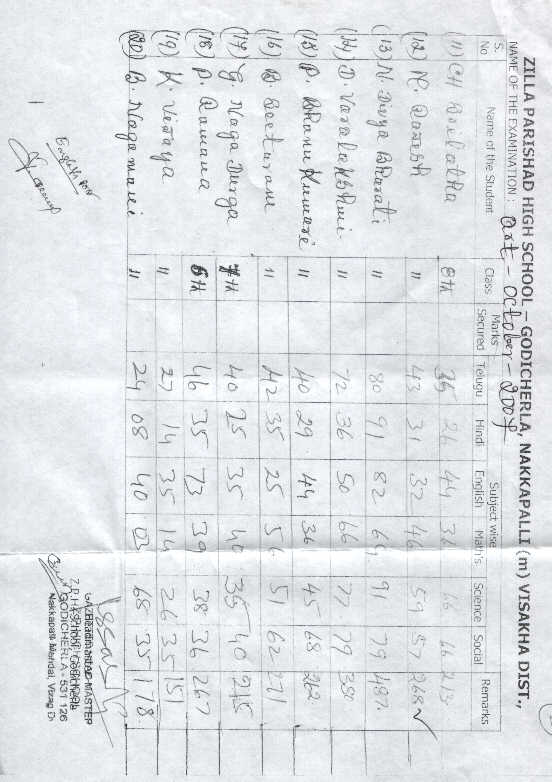 ZILLA PARISHAD HIGH SCHOOL – GODICHERLA, NAKKAPALLI (m) VISAKHA DIST.,
NAME OF THE EXAMINATION : Oct - October - 2009
S. No Name of the Student Class Marks Secured Subject wise Remarks
Telugu Hindi English Math's Science Social
(11) CH 8th 26 44 66 66 213
(12) R. Ramesh " 43 31 32 46 59 57 268
(13) N. Divya Bharati " 80 91 82 64 91 79 487
(14) D. Varalakshmi " 72 36 50 66 77 79 380
(15) P. Bhanu Kumari " 40 29 44 36 45 68 262
(16) B. Seeturam " 42 35 25 56 51 62 271
(17) G. Naga Durga 7th 40 25 35 40 35 40 215
(18) P. Ramana 6th 46 35 73 39 38 36 267
(19) K. Vijaya " 27 14 35 14 26 35 151
(20) B. Nagamani " 24 08 40 03 68 35 178
GODICHERLA - 531 126
Nakkapalli Mandal, Vizag Dt